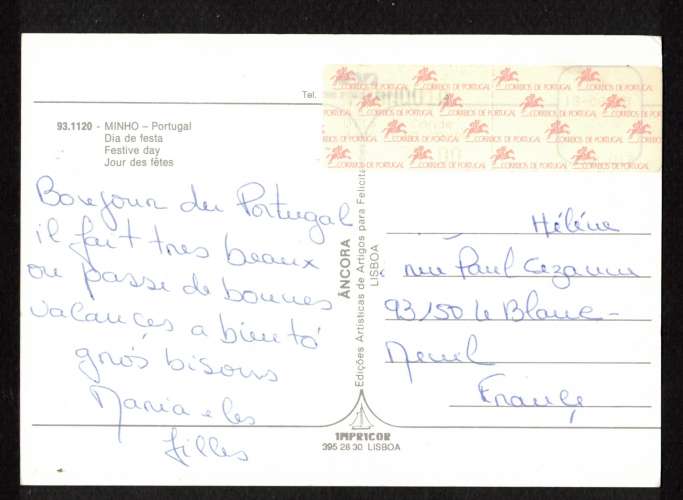 Tel.
93.1120 - MINHO – Portugal
Dia de festa
Festive day
Jour des fêtes
Bonjour du Portugal
il fait tres beaux
on passe de bonnes
vacances a bientô
gros bisous
Maria e les
filles
ÂNCORA
Edições Artísticas de Artigos para Felicita
LISBOA
IMPRICOR
395 28 30 LISBOA
CORREIOS DE PORTUGAL CORREIOS DE PORTUGAL CORREIOS DE PORTUGAL CORREIOS DE PORTUGAL
CORREIOS DE PORTUGAL CORREIOS DE PORTUGAL CORREIOS DE PORTUGAL CORREIOS DE PORTUGAL
CORREIOS DE PORTUGAL CORREIOS DE PORTUGAL CORREIOS DE PORTUGAL CORREIOS DE PORTUGAL
CORREIOS DE PORTUGAL CORREIOS DE PORTUGAL CORREIOS DE PORTUGAL CORREIOS DE PORTUGAL
Hélène
rue Paul Cezanne
93150 le Blanc-
Menil
France